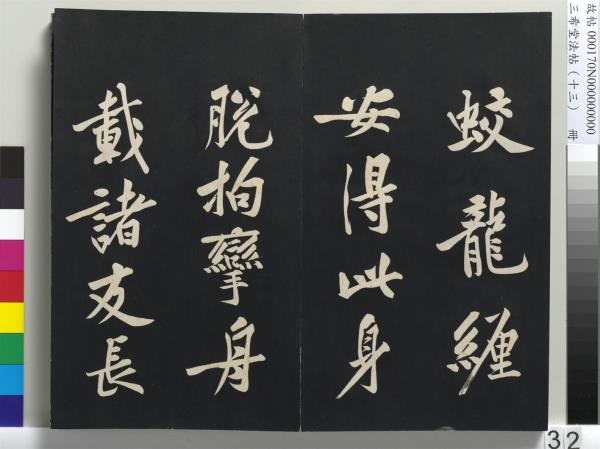 故帖 000170N000000000
三希堂法帖（十三） 冊
蛟龍纏
安得此身
脫拘攣舟
載諸友長
32